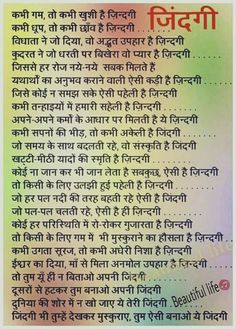 जिंदगी
कभी गम, तो कभी खुशी है ज़िन्दगी
कभी धूप, तो कभी छाँव है ज़िन्दगी . . . . . . .
विधाता ने जो दिया, वो अद्भुत उपहार है ज़िन्दगी
कुदरत ने जो धरती पर बिखेरा वो प्यार है ज़िन्दगी . . . . . .
जिससे हर रोज नये-नये सबक मिलते हैं
यथार्थों का अनुभव कराने वाली ऐसी कड़ी है ज़िन्दगी . . . . . .
जिसे कोई न समझ सके ऐसी पहेली है ज़िन्दगी
कभी तन्हाइयों में हमारी सहेली है ज़िन्दगी . . . . . . .
अपने-अपने कर्मों के आधार पर मिलती है ये ज़िन्दगी
कभी सपनों की भीड़, तो कभी अकेली है जिंदगी . . . . . .
जो समय के साथ बदलती रहे, वो संस्कृति है जिंदगी
खट्टी-मीठी यादों की स्मृति है ज़िन्दगी . . . . . . .
कोई ना जान कर भी जान लेता है सबकुछ, ऐसी है ज़िन्दगी
तो किसी के लिए उलझी हुई पहेली है ज़िन्दगी . . . . . . .
जो हर पल नदी की तरह बहती रहे ऐसी है जिंदगी
जो पल-पल चलती रहे, ऐसी है हीं ज़िन्दगी . . . . . . .
कोई हर परिस्थिति में रो-रोकर गुजारता है ज़िन्दगी
तो किसी के लिए गम में भी मुस्कुराने का हौसला है ज़िन्दगी . . . . . .
कभी उगता सूरज, तो कभी अधेरी निशा है ज़िन्दगी
ईश्वर का दिया, माँ से मिला अनमोल उपहार है ज़िन्दगी
तो तुम यूँ हीं न बिताओ अपनी जिंदगी
दूसरों से हटकर तुम बनाओ अपनी जिंदगी
दुनिया की शोर में न खो जाए ये तेरी जिंदगी
जिंदगी भी तुम्हें देखकर मुस्कुराए, तुम ऐसी बनाओ ये जिंदगी
Beautiful life